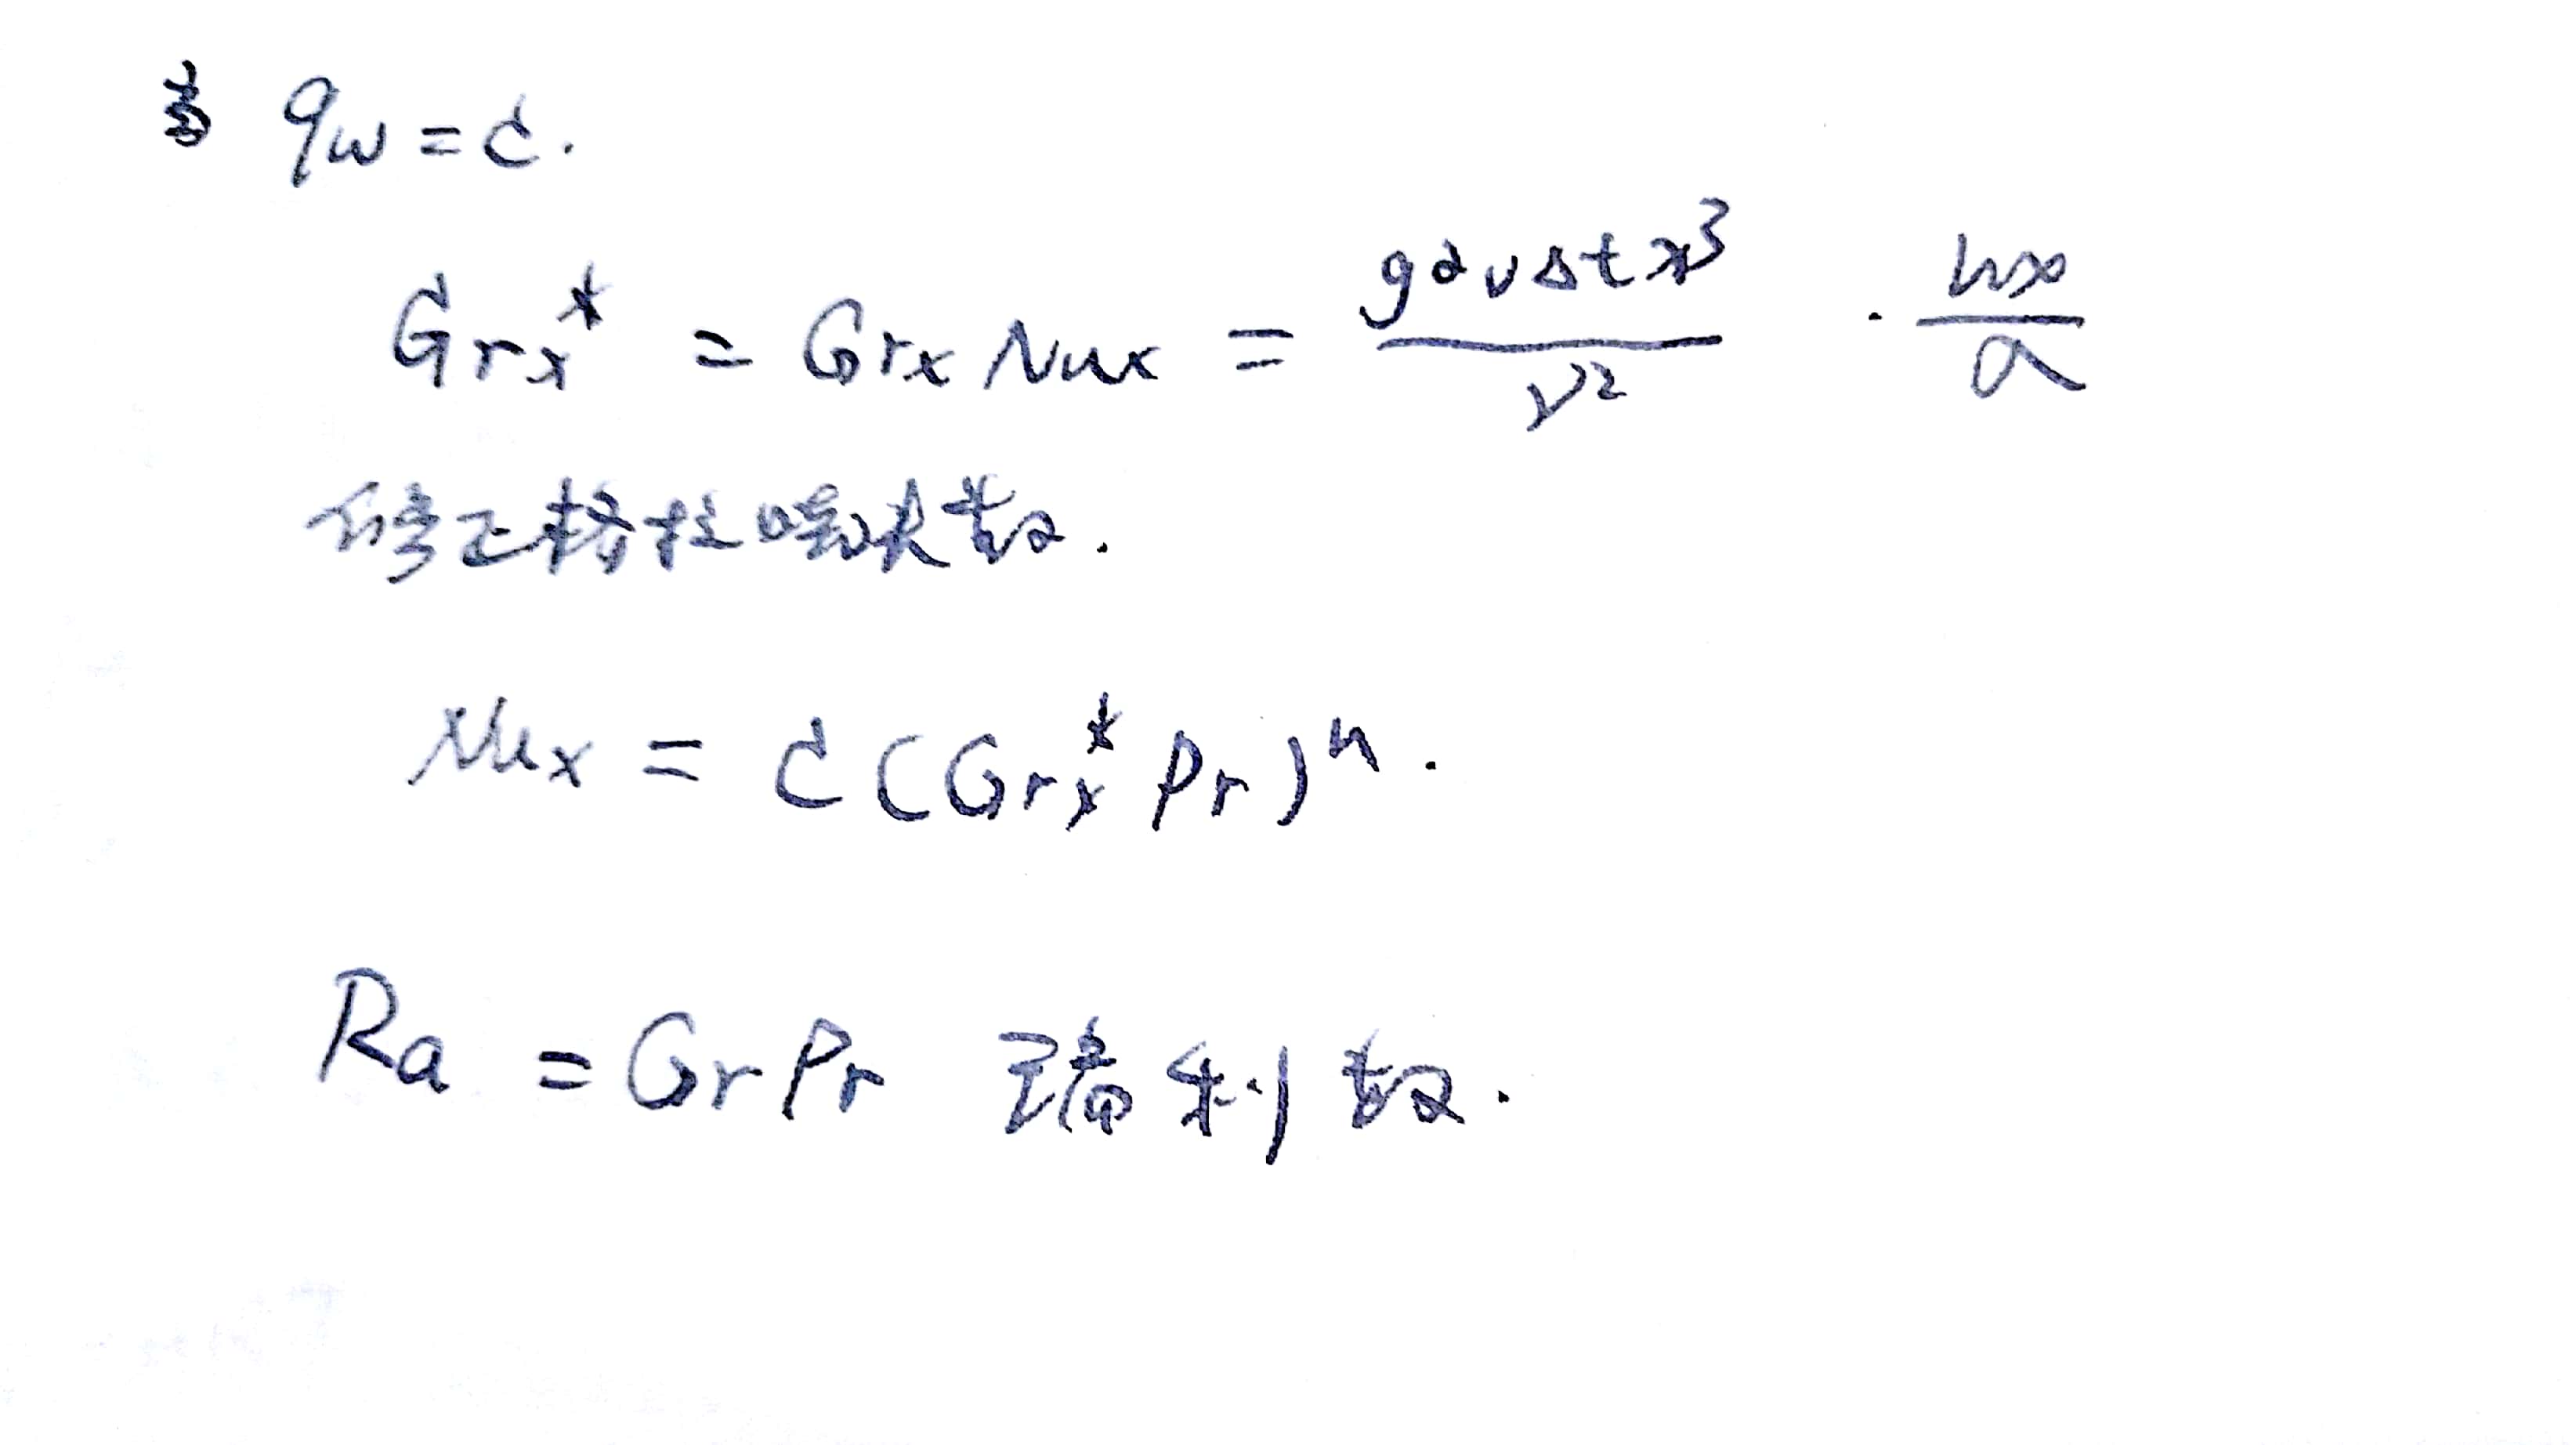 当 qw = C.
Grx* = Grx Nux = gαvΔtx³/ν² · hx/a
修正格拉晓夫数.
Nux = C(Grx* Pr)ⁿ.
Ra = GrPr 瑞利数.